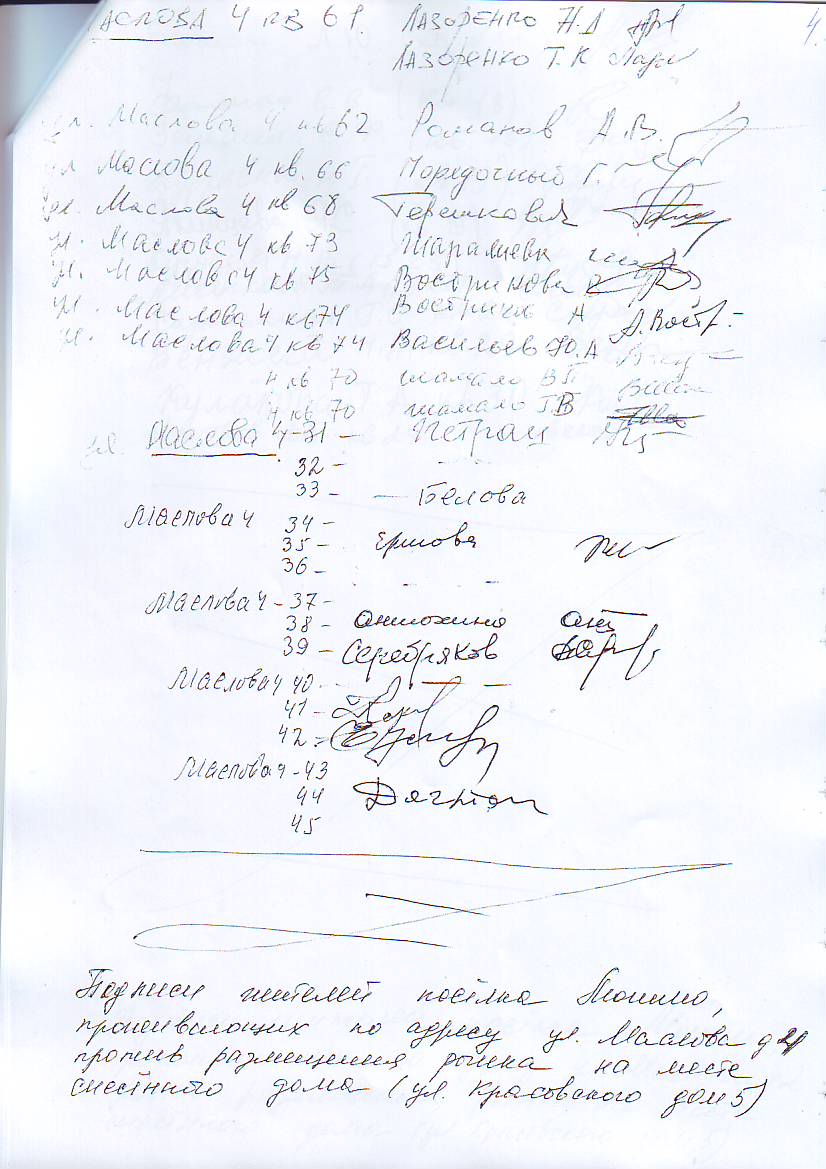 АСЛОВА 4 кв 61. ЛАЗОРЕНКО Н.Д 4.
ЛАЗОРЕНКО Т.К
ул. Маслова 4 кв 62 Романов А.В.
ул Маслова 4 кв. 66 Порядочный Г.
ул. Маслова 4 кв 68 Терешкович
ул. Маслова 4 кв 73
ул. Маслова 4 кв 75 Вострикова
ул. Маслова 4 кв 74 А А.Востр.-
ул. Маслова 4 кв 74 Васильев Ю.А
4 кв 70 шамало ВП
4 кв 70 шамало Т.В
ул. Маслова 4-31 -
32 -
33 - - Белова
Маслова 4 34 -
35 - Ершова
36 -
Маслова 4 - 37 -
38 - Анюхина
39 - Серебряков
Маслова 4 40
41 -
42 -
Маслова 4 - 43
44
45
Подписи жителей посёлка
проживающих по адресу ул. Маслова д 4
против размещения рынка на месте
снесённого дома (ул. Красовского дом 5)